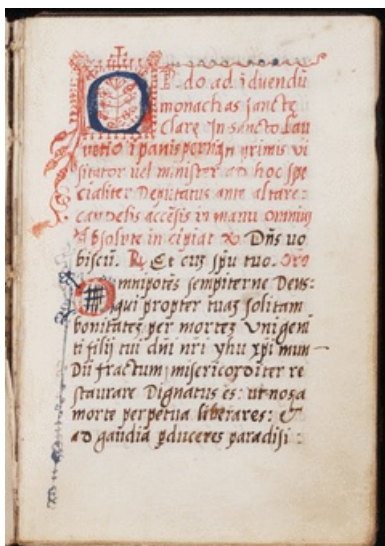 ORdo ad īduendū
monachas sanctę
Clare In sancto Lau
rētio ī panisperna primis vi
sitator uel minister ad hoc spe
cialiter Deputatus ante altare:
candelis accēsis in manu omniuʒ
absolute incipiat ℣. Dn̄s uo
biscū. ℟. Et cuʒ spū tuo. Oro
Omnipotēs sempiterne Deus:
qui propter tuaʒ solitam
bonitateʒ per morteʒ Vnigeni
ti filij tui dn̄i nr̄i yhu xp̄i mun—
Dū fractum misericorditer re
staurare Dignatus es: ut nos a
morte perpetua liberares: &
ad gaudia ꝑduceres paradisi: